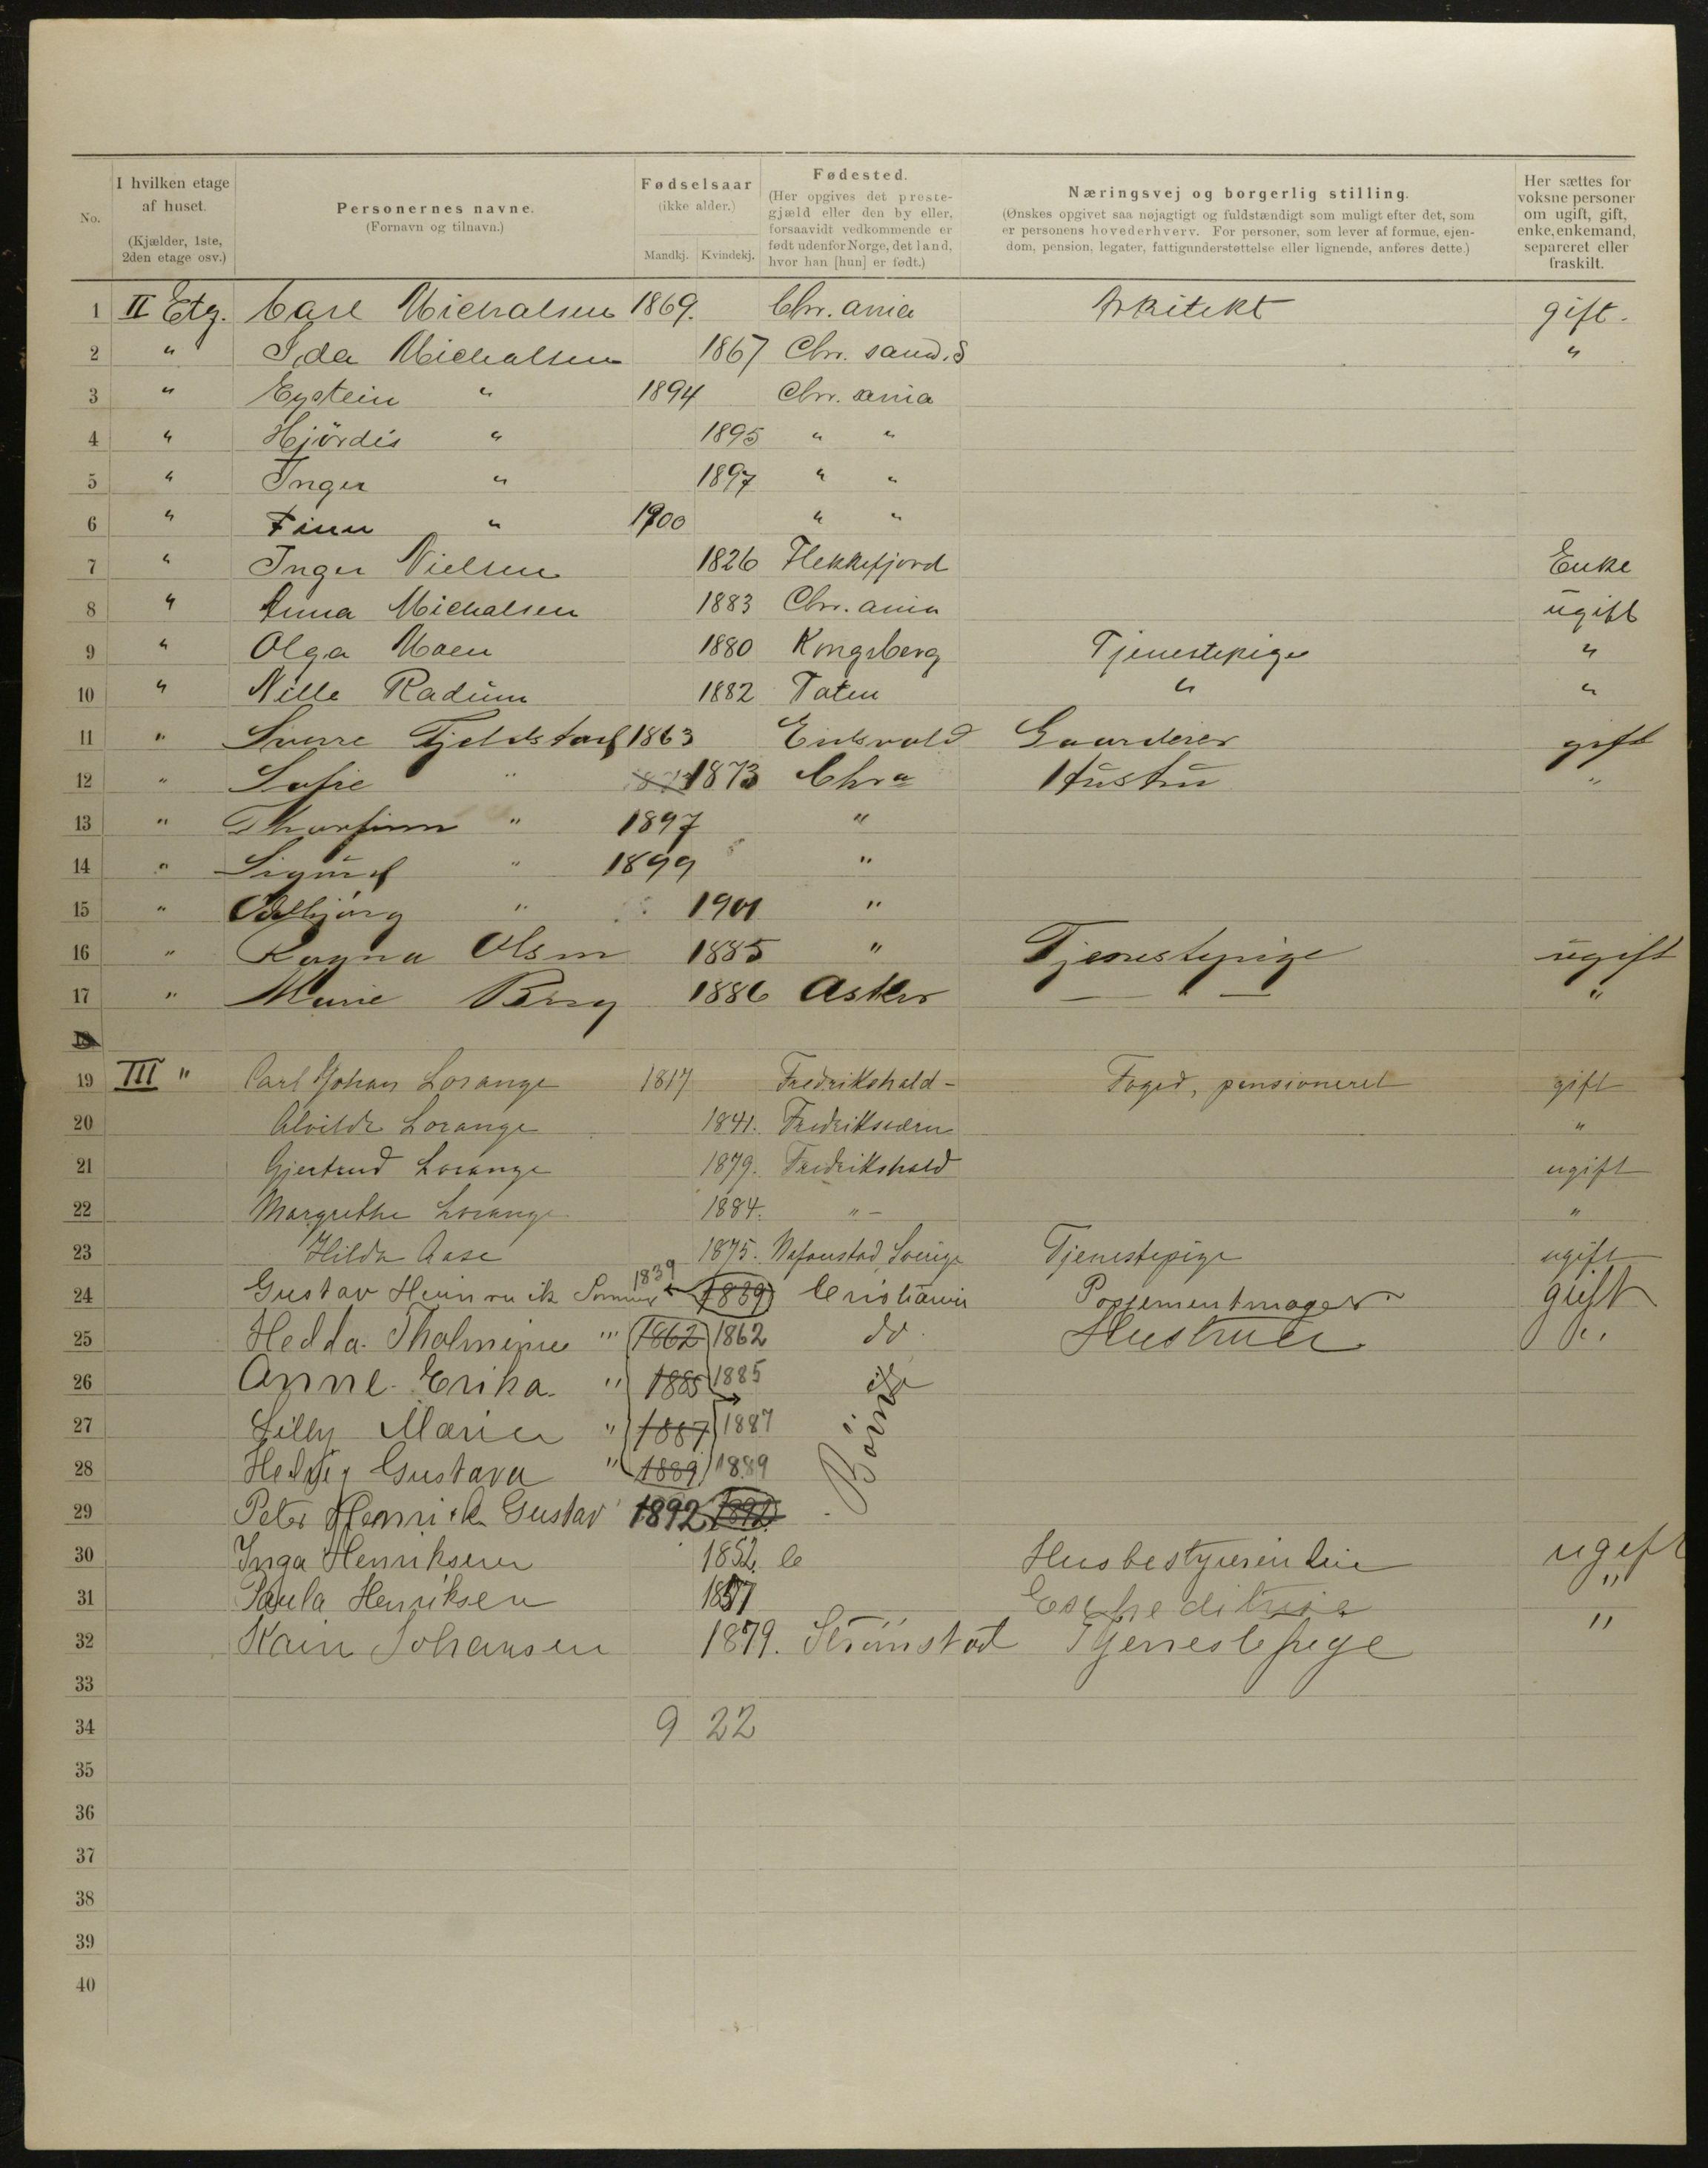 No.
I hvilken etage af huset. (Kjælder, 1ste, 2den etage osv.)
Personernes navne. (Fornavn og tilnavn.)
Fødselsaar (ikke alder.) Mandkj. Kvindekj.
Fødested. (Her opgives det prestegjæld eller den by eller, forsaavidt vedkommende er født udenfor Norge, det land, hvor han [hun] er født.)
Næringsvej og borgerlig stilling. (Ønskes opgivet saa nøjagtigt og fuldstændigt som muligt efter det, som er personens hovederhverv. For personer, som lever af formue, ejendom, pension, legater, fattigunderstøttelse eller lignende, anføres dette.)
Her sættes for voksne personer om ugift, gift, enke, enkemand, separeret eller fraskilt.
1 II Etg. Carl Michalsen 1869. Chr. ania Arkitekt gift.
2 " Ida Michalsen 1867 Chr. sand. S "
3 " Eystein " 1894 Chr. ania
4 " Hjördis " 1895 " "
5 " Inger " 1897 " "
6 " Finn " 1900 " "
7 " Inger Nielsen 1826 Flekkefjord Enke
8 " Anna Michalsen 1883 Chr. ania ugift
9 " Olga Moen 1880 Kongsberg Tjenestepige "
10 " Nille Radum 1882 Toten " "
11 " Sverre Fjeldstad 1863 Eidsvold Gaardeier gift
12 " Sofie " 1873 Chr a Hustru "
13 " Thorfinn " 1897 "
14 " Sigurd " 1899 "
15 " Odbjørg " 1901 "
16 " Ragna Olsen 1885 " Tjenestepige ugift
17 " Marie Berg 1886 Asker — " — "
18
19 III " Carl Johan Lorange 1817 Fredrikshald - Foged, pensioneret gift
20 Alvilde Lorange 1841. Fredriksværn "
21 Gjertrud Lorange 1879. Fredrikshald ugift
22 Margrethe Lorange 1884. " - "
23 Hilda Aase 1875. Sverige Tjenestepige ugift
24 Gustav Heinrik 1839 1839 Cristiania Possementmager gift
25 Hedda. Tholmine " 1862 1862 do. Hustru "
26 Anne. Erika. " 1885 1885
27 Lilly Marie " 1887 1887 Börn
28 Hedvig Gustava " 1889 1889
29 Peter Henrik Gustav 1892 1892
30 Inga Henriksen 1852. C Husbestyrerinde ugift
31 Paula Henriksen 1857 Expeditrise "
32 Karin Johansen 1879. Strömstad Tjenestepige "
33
34 9 22
35
36
37
38
39
40